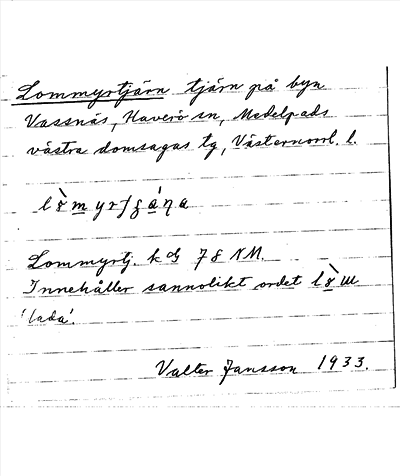 Lommyrtjärn tjärn på byn
Vassnäs, Haverö sn, Medelpads
västra domsagas tg, Västernorrl. l.
Lommyrtj. k 78 NM.
Innehåller sannolikt ordet
'lada'.
Valter Jansson 1933.